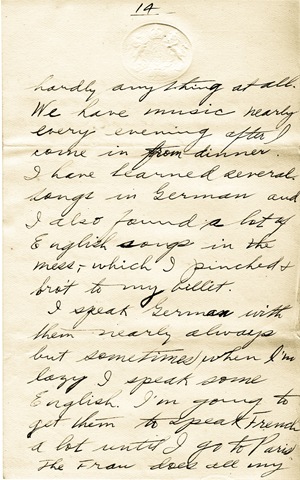 14
hardly anything at all.
We have music nearly
every evening after I
come in from dinner.
I have learned several
songs in German and
I also found a lot of
English songs in the
mess, - which I pinched &
bro't to my billet.
I speak German with
them nearly always
but sometimes, when I'm
lazy I speak some
English. I'm going to
get them to speak French
a lot until I go to Paris.
The Frau does all my